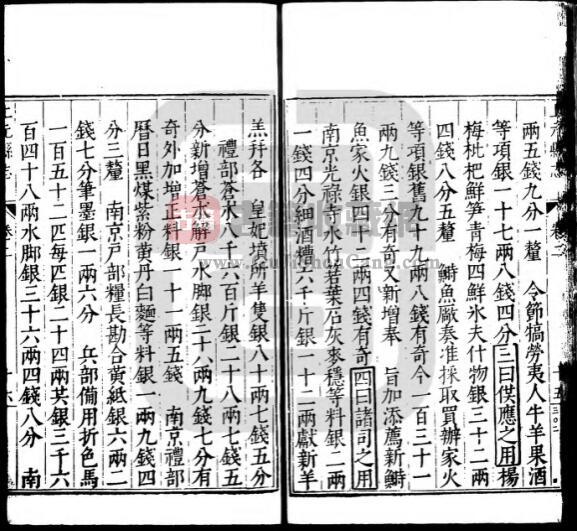 兩五錢九分一釐　令節犒勞夷人牛羊果酒
等項銀一十七兩八錢四分三曰供應之用楊
梅枇杷鮮笋青梅四鮮氷夫什物銀三十二兩
四錢八分五釐　鰣魚厰奏准採取買辦家火
等項銀舊九十九兩八錢有奇今一百三十一
兩九錢三分有奇又新增奉　旨加添薦新鰣
魚家火銀四十二兩四錢有奇四曰諸司之用
南京光祿寺水竹箬葉石灰麥穩等料銀二兩
一錢四分細酒糟六千斤銀一十二兩獻新羊
卷之
十五
羔并各　皇妃墳所羊隻銀八十兩七錢五分
禮部蒼水八千六百斤銀二十八兩七錢五
分新增蒼水解戸水脚銀二十八兩九錢七分有
奇外加增正料銀一十一兩五錢　南京禮部
曆日黑煤紫粉黄丹白麵等料銀一兩九錢四
分三釐　南京戸部糧長勘合黄紙銀六兩二
錢七分筆墨銀一兩六分　兵部備用折色馬
一百五十二匹每匹銀二十四兩共銀三千六
百四十八兩水脚銀三十六兩四錢八分　南
上元縣志
卷二
十六